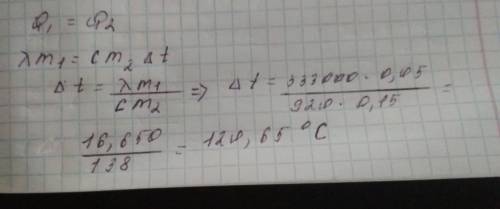 Q₁ = Q₂
λm₁ = cm₂ Δt
Δt = λm₁/cm₂ => Δt = 333000 · 0,05/920 · 0,15 =
16,650/138 = 120,65 °C